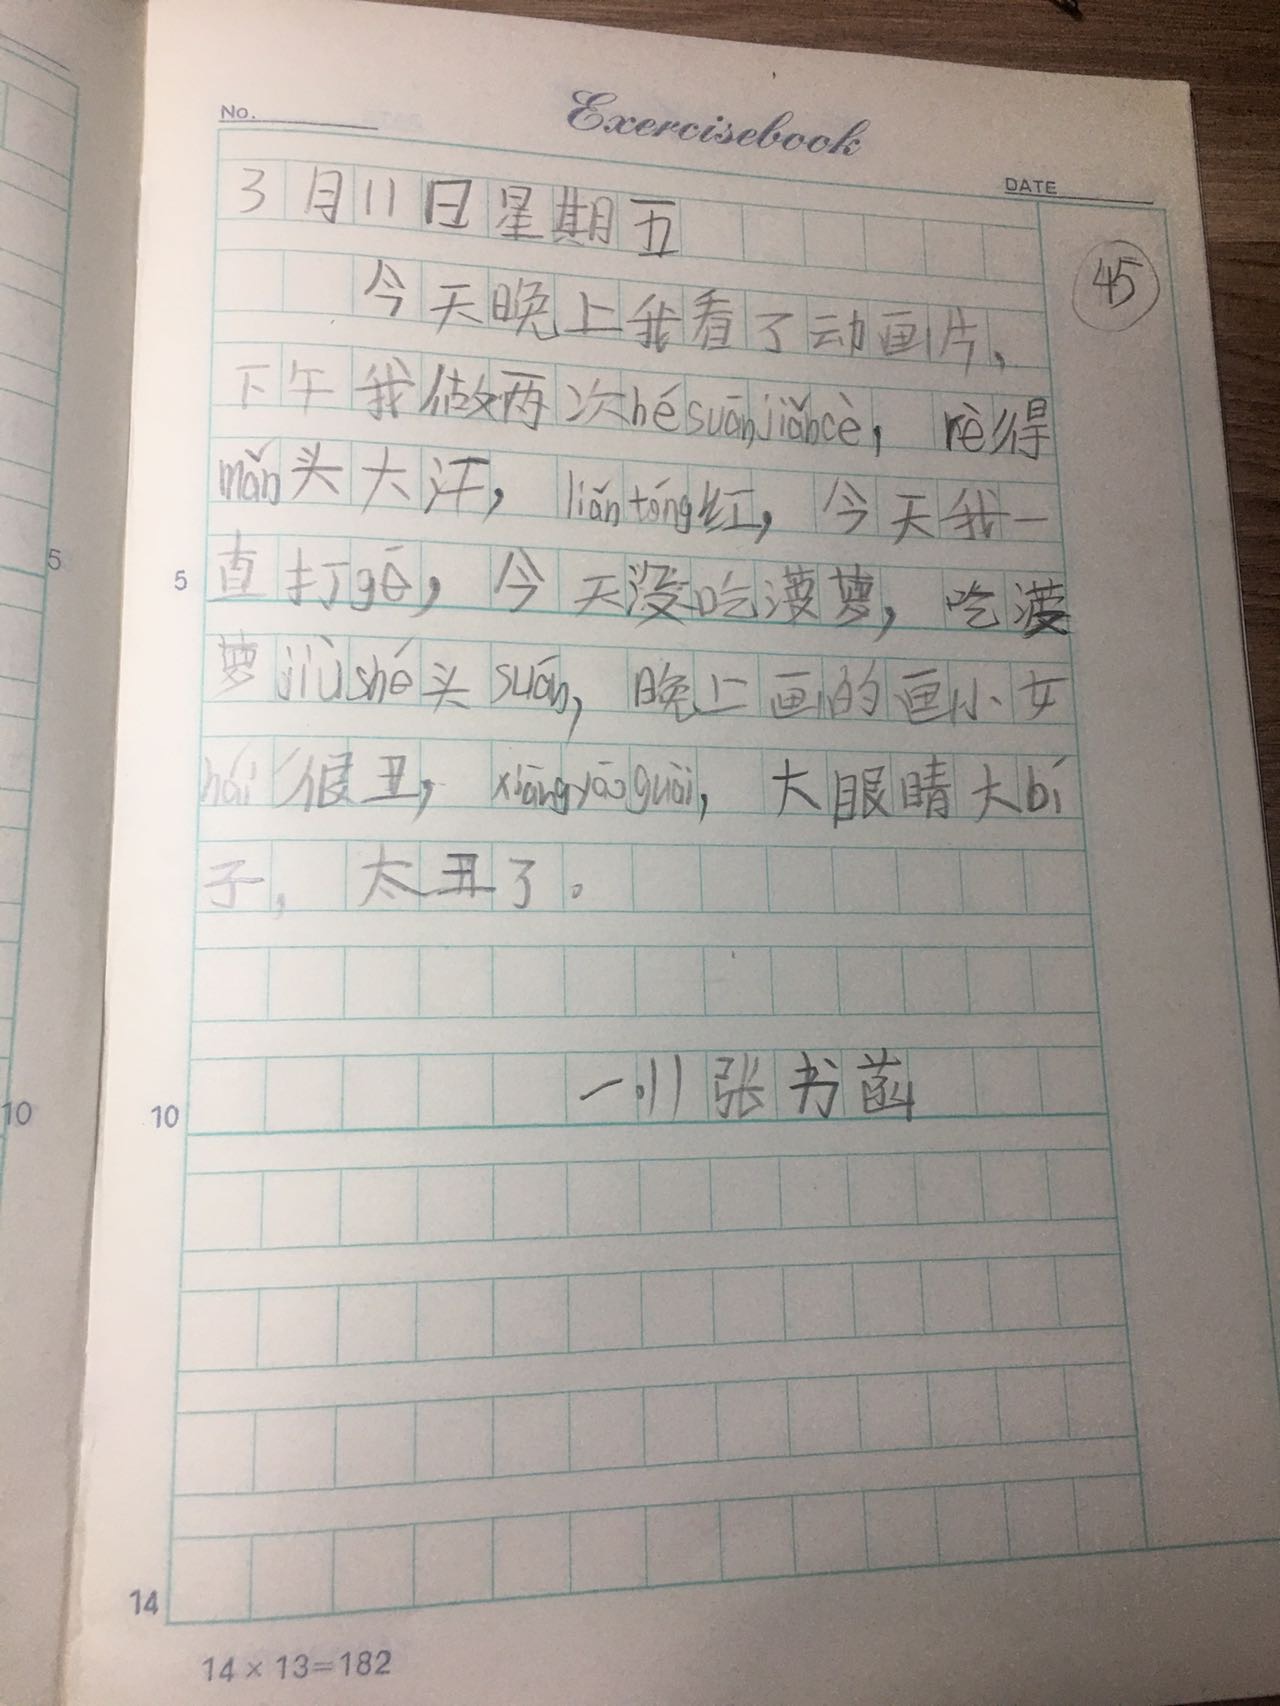 No.
Exercisebook
DATE
3月11日星期五
45
今天晚上我看了动画片、
下午我做两次hésuānjiǎncè，rè得
mǎn头大汗，liǎntóng红，今天我一
5
直打gé，今天没吃菠萝，吃菠
5
萝jiùshé头suān，晚上画的画小女
hái很丑，xiàngyāoguài，大眼睛大bí
子，太丑了。
一.11张书菡
10
10
14
14×13=182